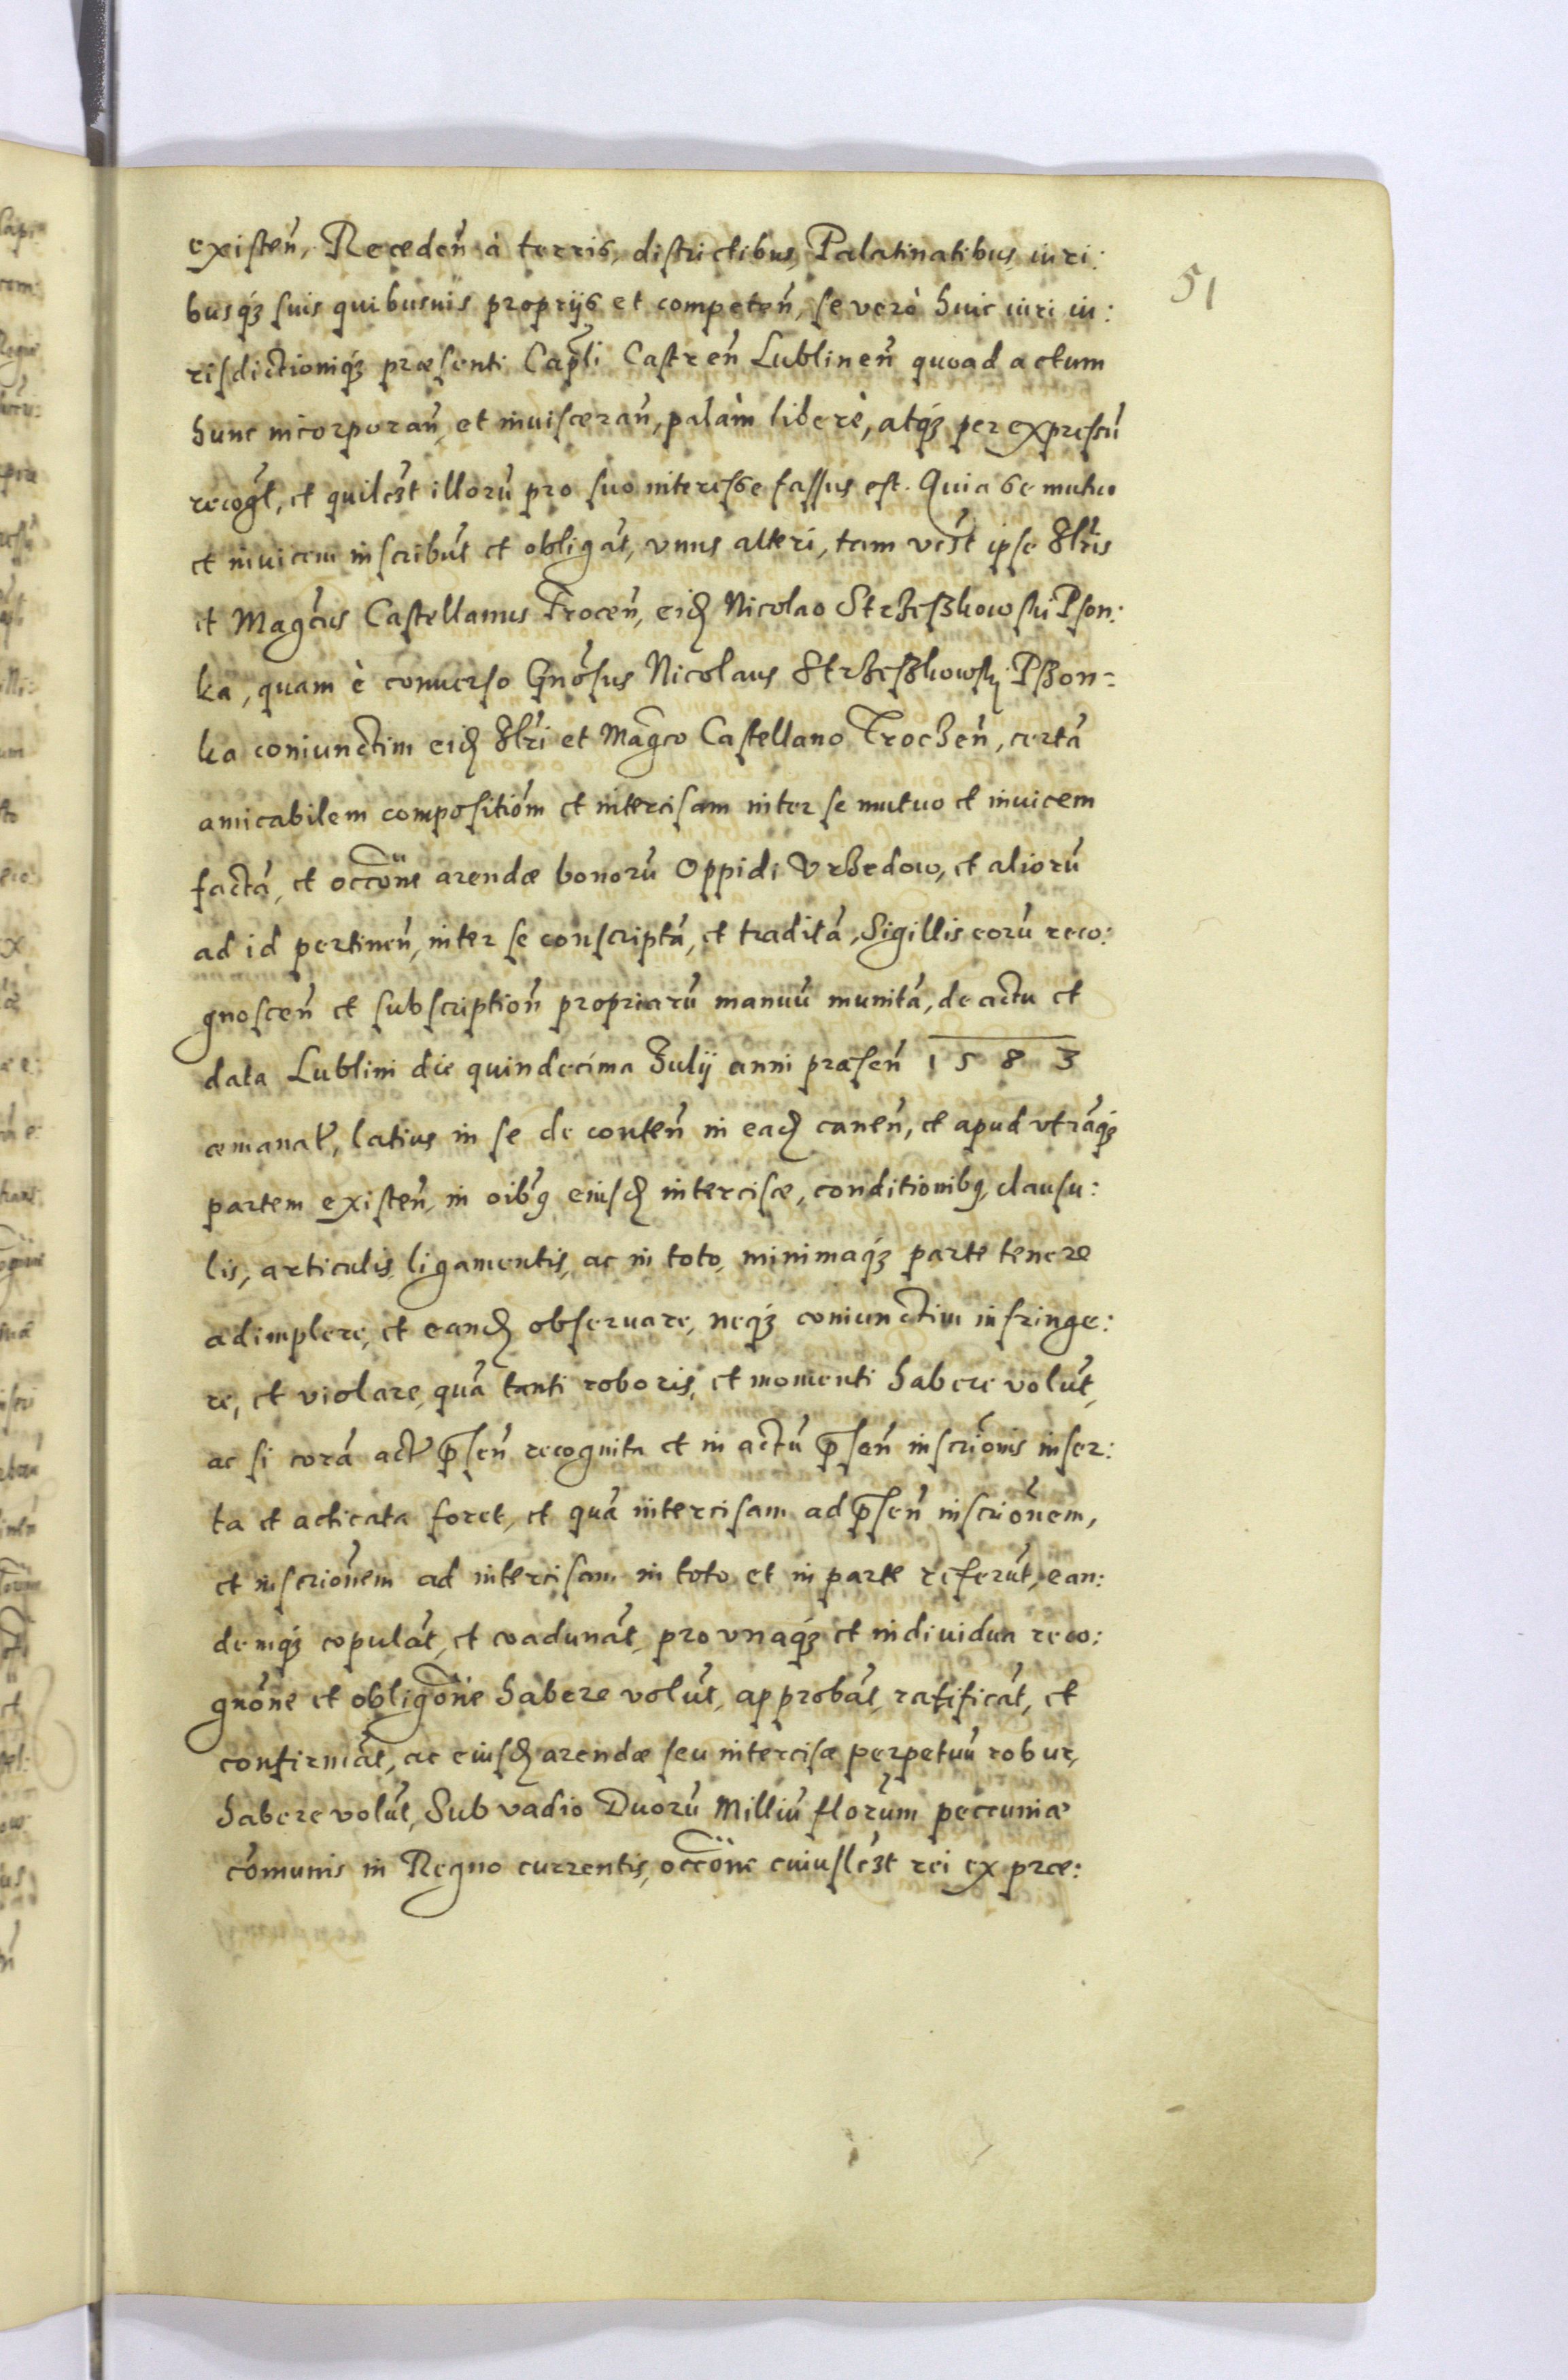 51
existen̄, Receden̄ à terris, districtibus, Palatinatibus iuri:
busq́ꝫ suis quibusuis proprijs et competen̄, se verò huic iuri iu:
risdictioniq́ꝫ præsenti Cap̄li Castren̄ Lublinen̄ quoad actum
hunc incorporan̄ et inuisceran̄, palàm liberè, atq́ꝫ per expressū
recogt̄, et quilꝫt illorū pro suo interesse fassus est. Quia se mutuo
et inuicem inscribūt et obligāt, vnus alteri, tam vꝫt ipse Illr̄is
et Magc̄us Castellanus Trocen̄, eid̄ Nicolao Strzeszkowski Pson:
ka, quam è conuerso Gnōsus Nicolaus Strzeszkowskj Pszon=
ka coniunctim eid̄ Illr̄i et Magc̄o Castellano Troczen̄, certā
amicabilem compositiōm et intercisam inter se mutuo et inuicem
factā, et occōne arendæ bonorū Oppidi Vrzedow, et aliorū
ad id pertinen̄, inter se conscriptā, et traditā, Sigillis eorū reco:
gnoscen̄ et subscription̄ propriarū manuū munitā, de actu et
data Lublini die quindecima Julij anni præsen̄ 1583
æmanat̄, latius in se de conten̄ in ead̄ canen̄, et apud vtrāq́ꝫ
partem existen̄, in oībꝰ eiusd̄ intercisæ, conditionibꝰ, clausu:
lis, articulis ligamentis, ac in toto, minimaq́ꝫ parte tenere
adimplere, et eand̄ obseruare, neq́ꝫ coniunctim infringe:
re, et violare, quā tanti roboris, et momenti habere volūt,
ac si corā act̄ p̄sen̄ recognita et in actū p̄sen̄ inscriōnis inser:
ta et acticata foret, et quā intercisam ad p̄sen̄ inscriōnem,
et inscriōnem ad intercisam in toto et in parte referūt, ean:
demq́ꝫ copulāt, et coadunāt, pro vnaq́ꝫ et indiuidua reco:
gnōne et obligōne habere volūt, approbāt, ratificāt, et
confirmāt, ac eiusd̄ arendæ seu intercisæ perpetuū robur,
habere volūt, Sub vadio Duorū Milliū florūm peccuniæ
cōmunis in Regno currentis, occōne cuiuslꝫt rei ex præ: